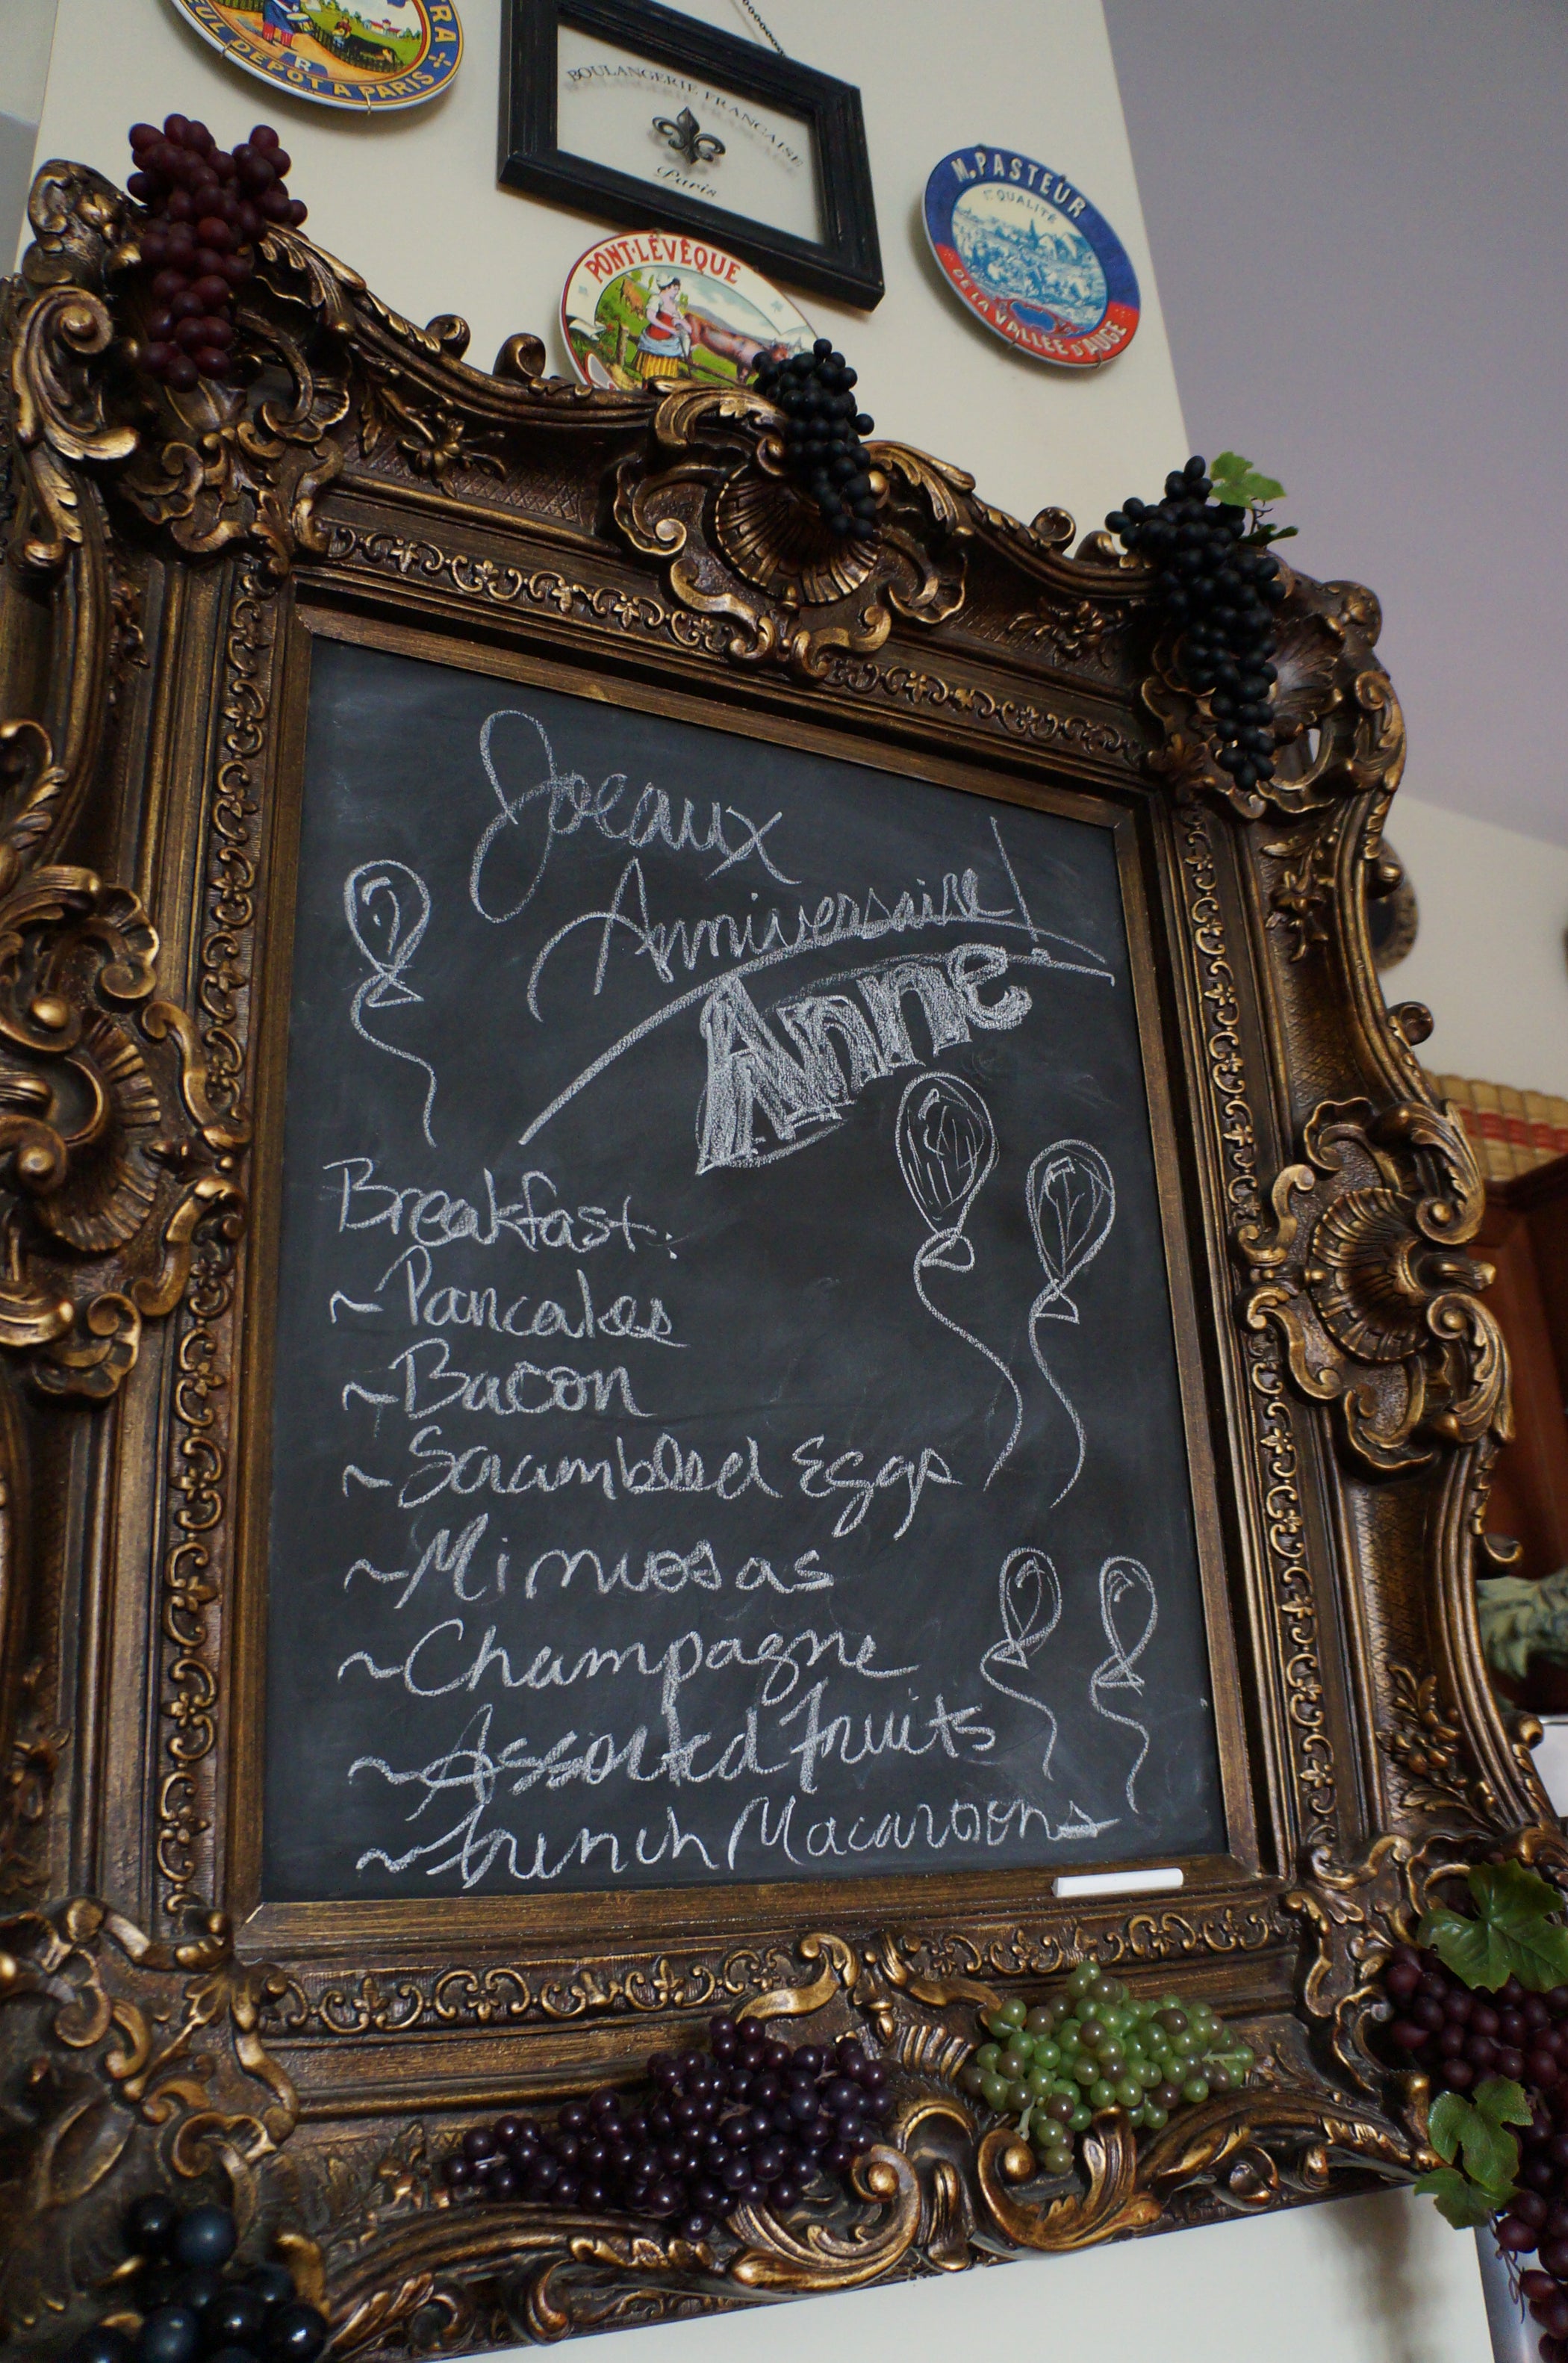 RA
R
EUL DÉPÔT A PARIS
BOULANGERIE FRANCAISE
Paris
M. PASTEUR
1re QUALITÉ
DE LA VALLÉE D'AUGE
PONT-LÉVÊQUE
Joeaux
Anniversaire!
Anne
Breakfast:
~Pancakes
~Bacon
~Scrambled Eggs
~Mimosas
~Champagne
~Assorted Fruits
~French Macaroons